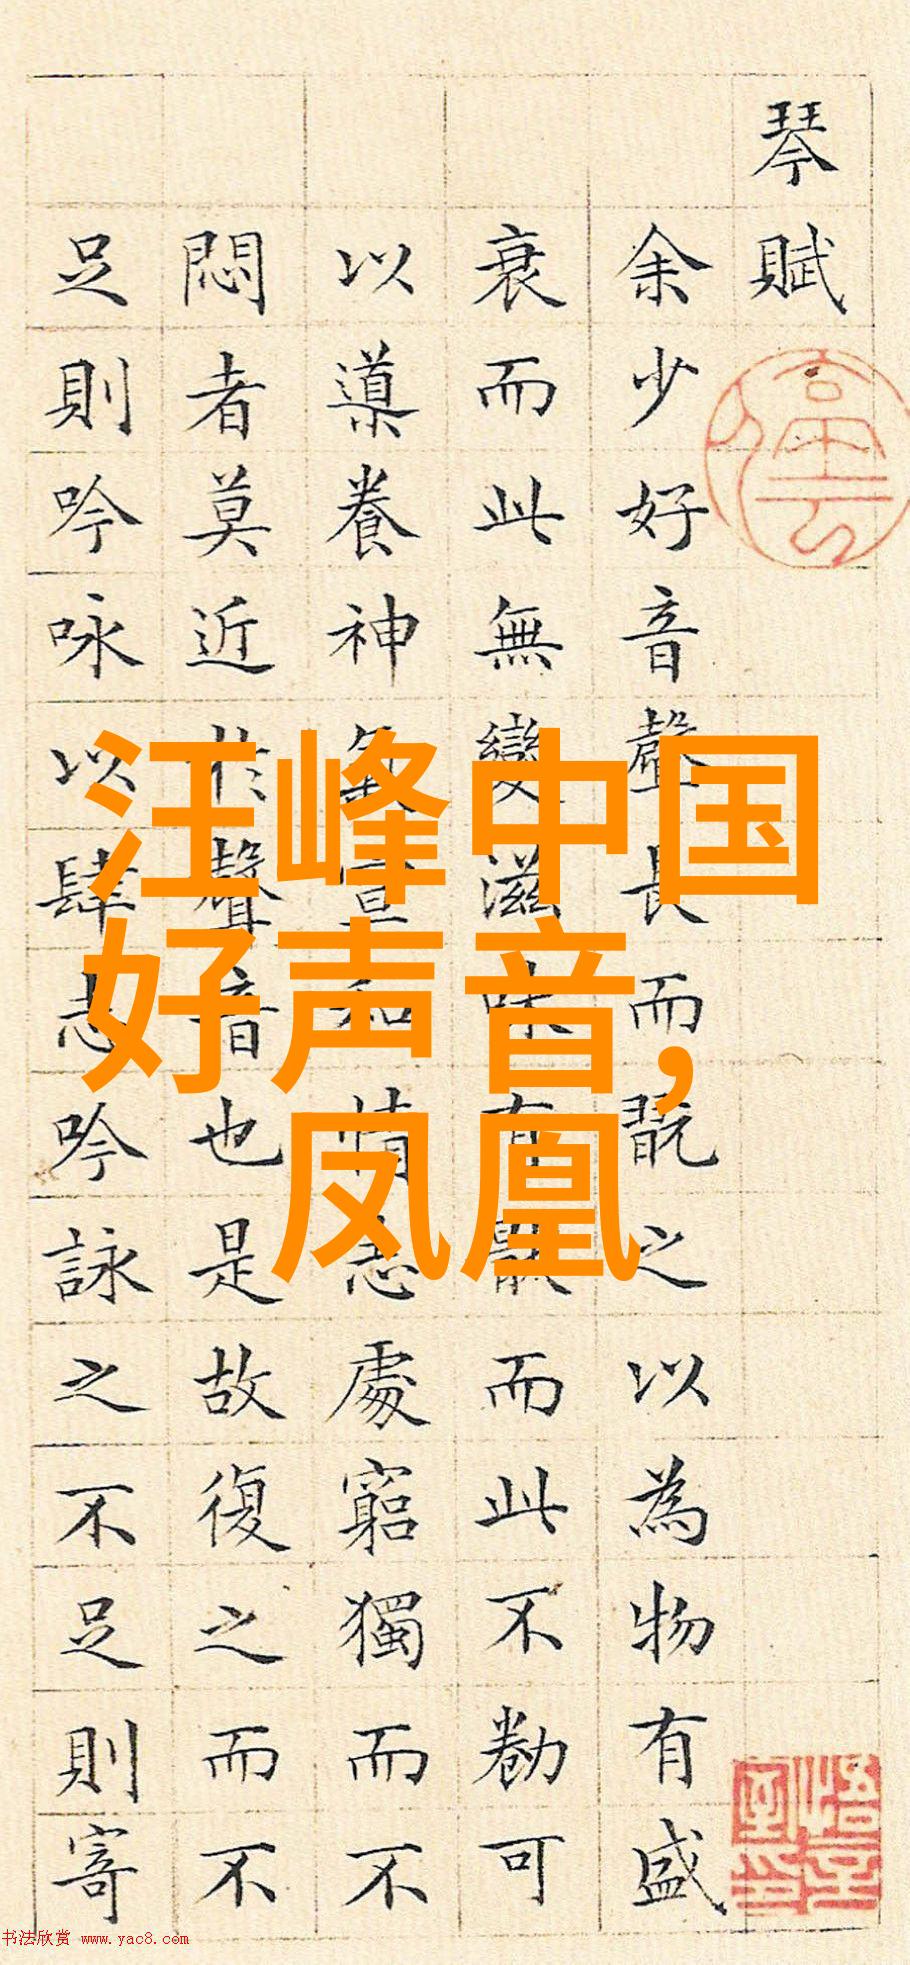 琴賦
余少好音聲長而翫之以為物有盛
衰而此無變滋味有猒而此不勌可
以導養神氣宣和情志處窮獨而不
悶者莫近於聲音也是故復之而不
足則吟咏以肆志吟詠之不足則寄
汪峰中国
好声音,
凤凰
书法欣赏 www.yac8.com